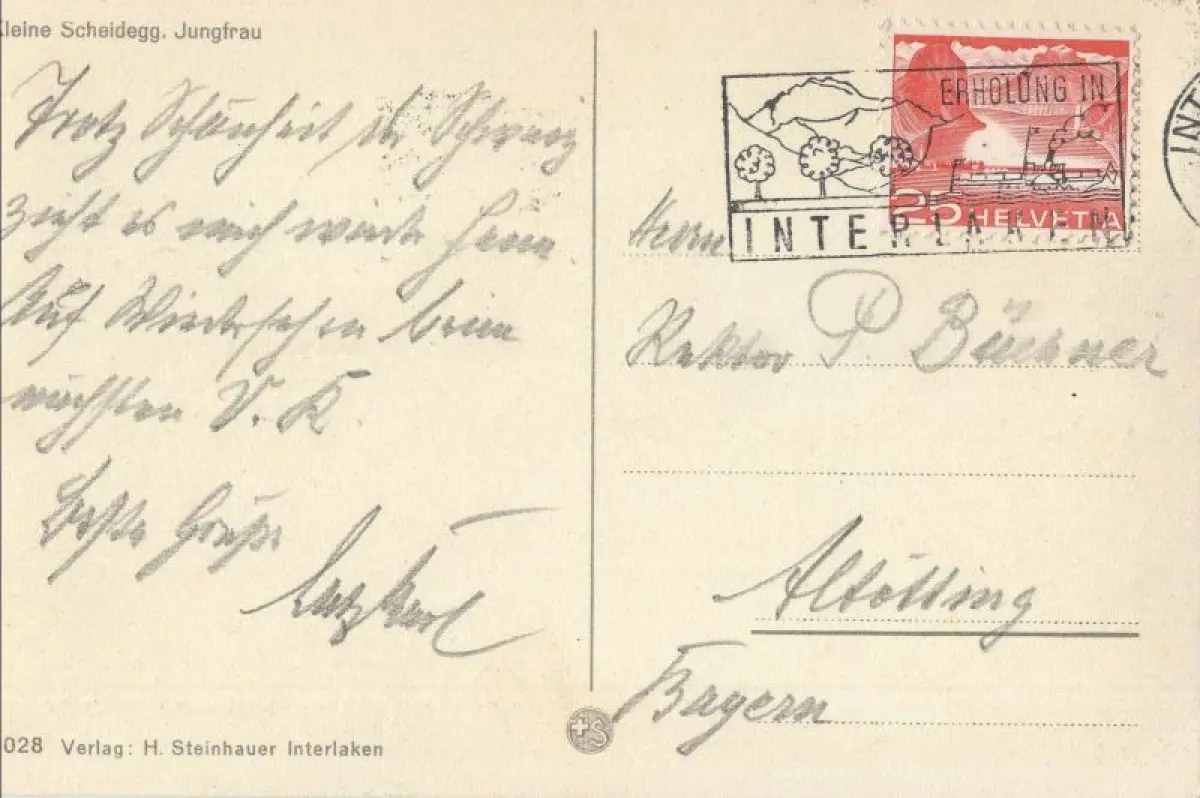 Kleine Scheidegg. Jungfrau
Trotz Schönheit der Schweiz
zieht es mich wieder heim
Auf Wiedersehen beim
nächsten V. K.
Beste Grüße
Karl
028 Verlag: H. Steinhauer Interlaken
ERHOLUNG IN
INTERLAKEN
25 HELVETIA
INT
Herrn
Rektor P. Büchner
Altötting
Bayern
+S